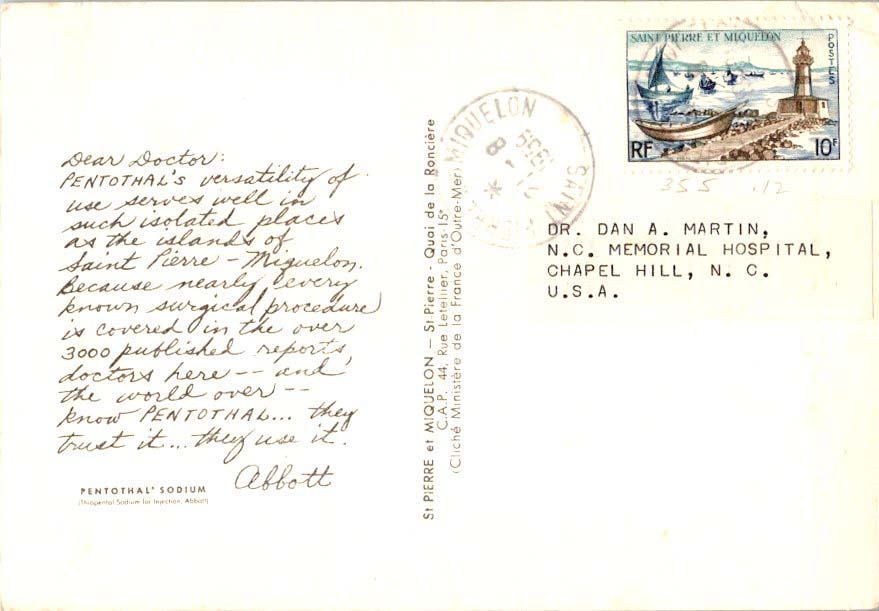 Dear Doctor:
PENTOTHAL'S versatility of
use serves well in
such isolated places
as the islands of
Saint Pierre - Miquelon.
Because nearly every
known surgical procedure
is covered in the over
3000 published reports,
doctors here -- and
the world over --
know PENTOTHAL... they
trust it... they use it.
Abbott
PENTOTHAL® SODIUM
(Thiopental Sodium for Injection, Abbott)
St PIERRE et MIQUELON — St-Pierre - Quai de la Roncière
C.A.P. 44, Rue Letellier, Paris-15e
(Cliché Ministère de la France d'Outre-Mer)
MIQUELON
SAINT
SAINT PIERRE ET MIQUELON
POSTES
RF
10F
355 .12
DR. DAN A. MARTIN,
N.C. MEMORIAL HOSPITAL,
CHAPEL HILL, N. C.
U.S.A.